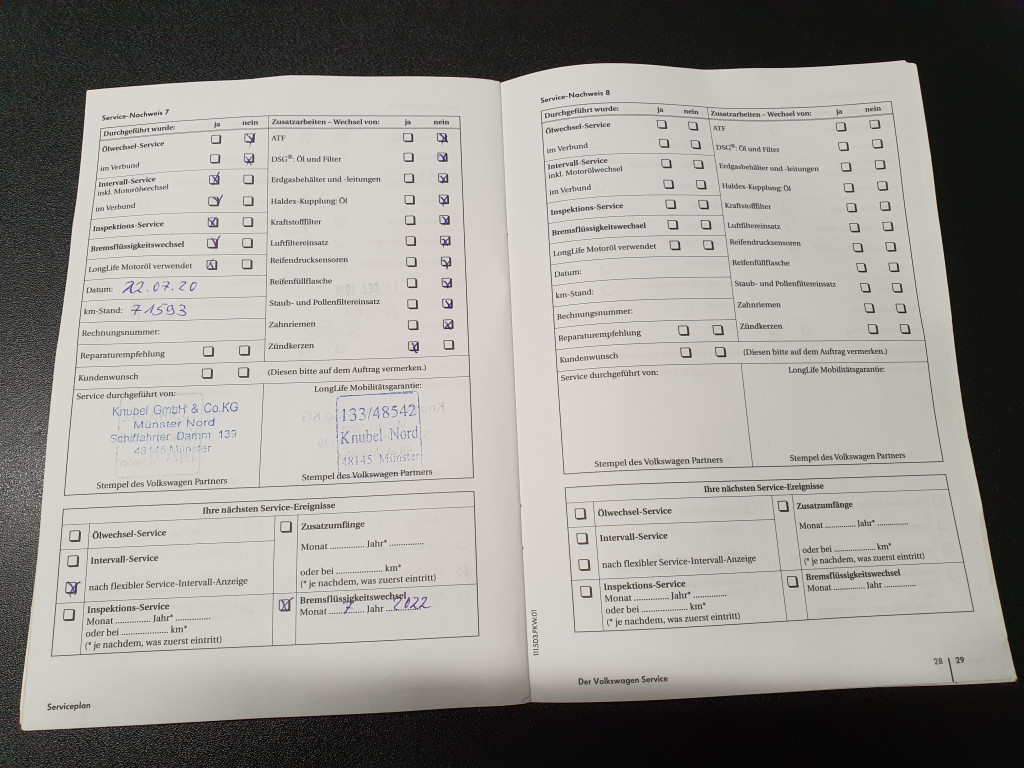 Service-Nachweis 7
Durchgeführt wurde: ja nein
Ölwechsel-Service
im Verbund
Intervall-Service
inkl. Motorölwechsel
im Verbund
Inspektions-Service
Bremsflüssigkeitswechsel
LongLife Motoröl verwendet
Datum: 22.07.20
km-Stand: 71593
Rechnungsnummer:
Reparaturempfehlung
Kundenwunsch
Zusatzarbeiten – Wechsel von: ja nein
ATF
DSG®: Öl und Filter
Erdgasbehälter und -leitungen
Haldex-Kupplung: Öl
Kraftstofffilter
Luftfiltereinsatz
Reifendrucksensoren
Reifenfüllflasche
Staub- und Pollenfiltereinsatz
Zahnriemen
Zündkerzen
(Diesen bitte auf dem Auftrag vermerken.)
Service durchgeführt von:
Knubel GmbH & Co.KG
Münster Nord
Schiffahrter Damm 139
48145 Münster
Stempel des Volkswagen Partners
LongLife Mobilitätsgarantie:
133/48542
Knubel Nord
48145 Münster
Stempel des Volkswagen Partners
Ihre nächsten Service-Ereignisse
Ölwechsel-Service
Intervall-Service
nach flexibler Service-Intervall-Anzeige
Inspektions-Service
Monat .............. Jahr* ..............
oder bei ................... km*
(* je nachdem, was zuerst eintritt)
Zusatzumfänge
Monat .............. Jahr* ..............
oder bei ................... km*
(* je nachdem, was zuerst eintritt)
Bremsflüssigkeitswechsel
Monat 7 Jahr 2022
Serviceplan
Service-Nachweis 8
Durchgeführt wurde: ja nein
Ölwechsel-Service
im Verbund
Intervall-Service
inkl. Motorölwechsel
im Verbund
Inspektions-Service
Bremsflüssigkeitswechsel
LongLife Motoröl verwendet
Datum:
km-Stand:
Rechnungsnummer:
Reparaturempfehlung
Kundenwunsch
Zusatzarbeiten – Wechsel von: ja nein
ATF
DSG®: Öl und Filter
Erdgasbehälter und -leitungen
Haldex-Kupplung: Öl
Kraftstofffilter
Luftfiltereinsatz
Reifendrucksensoren
Reifenfüllflasche
Staub- und Pollenfiltereinsatz
Zahnriemen
Zündkerzen
(Diesen bitte auf dem Auftrag vermerken.)
Service durchgeführt von:
Stempel des Volkswagen Partners
LongLife Mobilitätsgarantie:
Stempel des Volkswagen Partners
Ihre nächsten Service-Ereignisse
Ölwechsel-Service
Intervall-Service
nach flexibler Service-Intervall-Anzeige
Inspektions-Service
Monat .............. Jahr* ..............
oder bei ................... km*
(* je nachdem, was zuerst eintritt)
Zusatzumfänge
Monat .............. Jahr* ..............
oder bei ................... km*
(* je nachdem, was zuerst eintritt)
Bremsflüssigkeitswechsel
Monat .............. Jahr ..............
111.5D3.PKW.01
Der Volkswagen Service
28 | 29